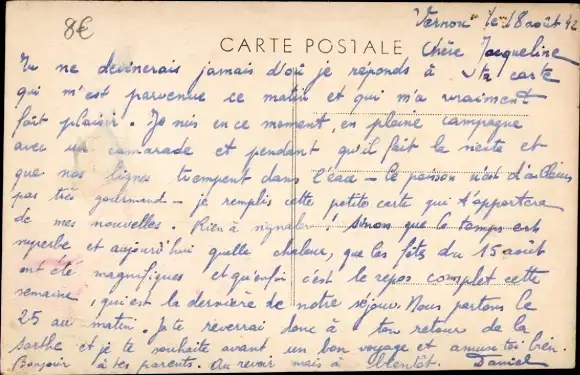 8€
Vernou le 18 août 42
CARTE POSTALE
Chère Jacqueline
Tu ne devinerais jamais d'où je réponds à ta carte
qui m'est parvenue ce matin et qui m'a vraiment
fait plaisir. Je suis en ce moment, en pleine campagne
avec un camarade et pendant qu'il fait la sieste et
que nos lignes trempent dans l'eau – le poisson n'est d'ailleurs
pas très gourmand – je remplis cette petite carte qui t'apportera
de mes nouvelles. Rien à signaler! Sinon que le temps est
superbe et aujourd'hui quelle chaleur, que les fêtes du 15 août
ont été magnifiques et qu'enfin c'est le repos complet cette
semaine, qui est la dernière de notre séjour. Nous partons le
25 au matin. Je te reverrai donc à ton retour de la
Sarthe et je te souhaite avant un bon voyage et amuse toi bien.
Bonjour à tes parents. Au revoir mais à bientôt. Daniel